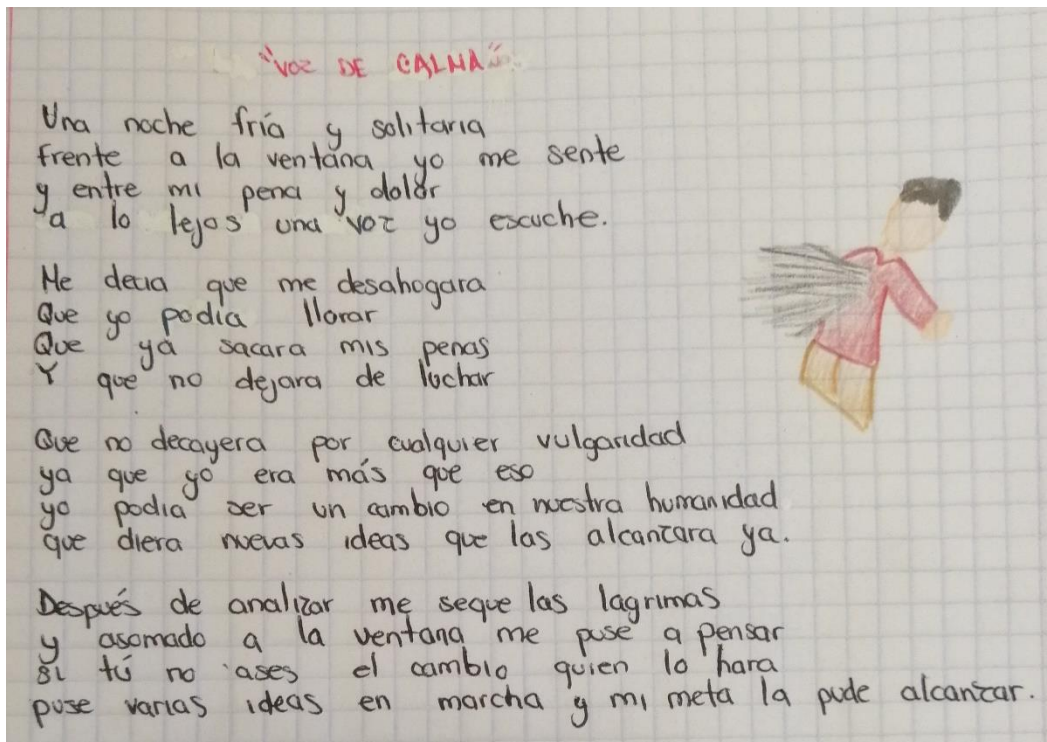 "VOZ DE CALMA"
Una noche fría y solitaria
frente a la ventana yo me sente
y entre mi pena y dolor
a lo lejos una voz yo escuche.
Me decia que me desahogara
Que yo podía llorar
Que ya sacara mis penas
Y que no dejara de luchar
Que no decayera por cualquier vulgaridad
ya que yo era más que eso
yo podia ser un cambio en nuestra humanidad
que diera nuevas ideas que las alcanzara ya.
Después de analizar me seque las lagrimas
y asomado a la ventana me puse a pensar
si tú no ases el cambio quien lo hara
puse varias ideas en marcha y mi meta la pude alcanzar.